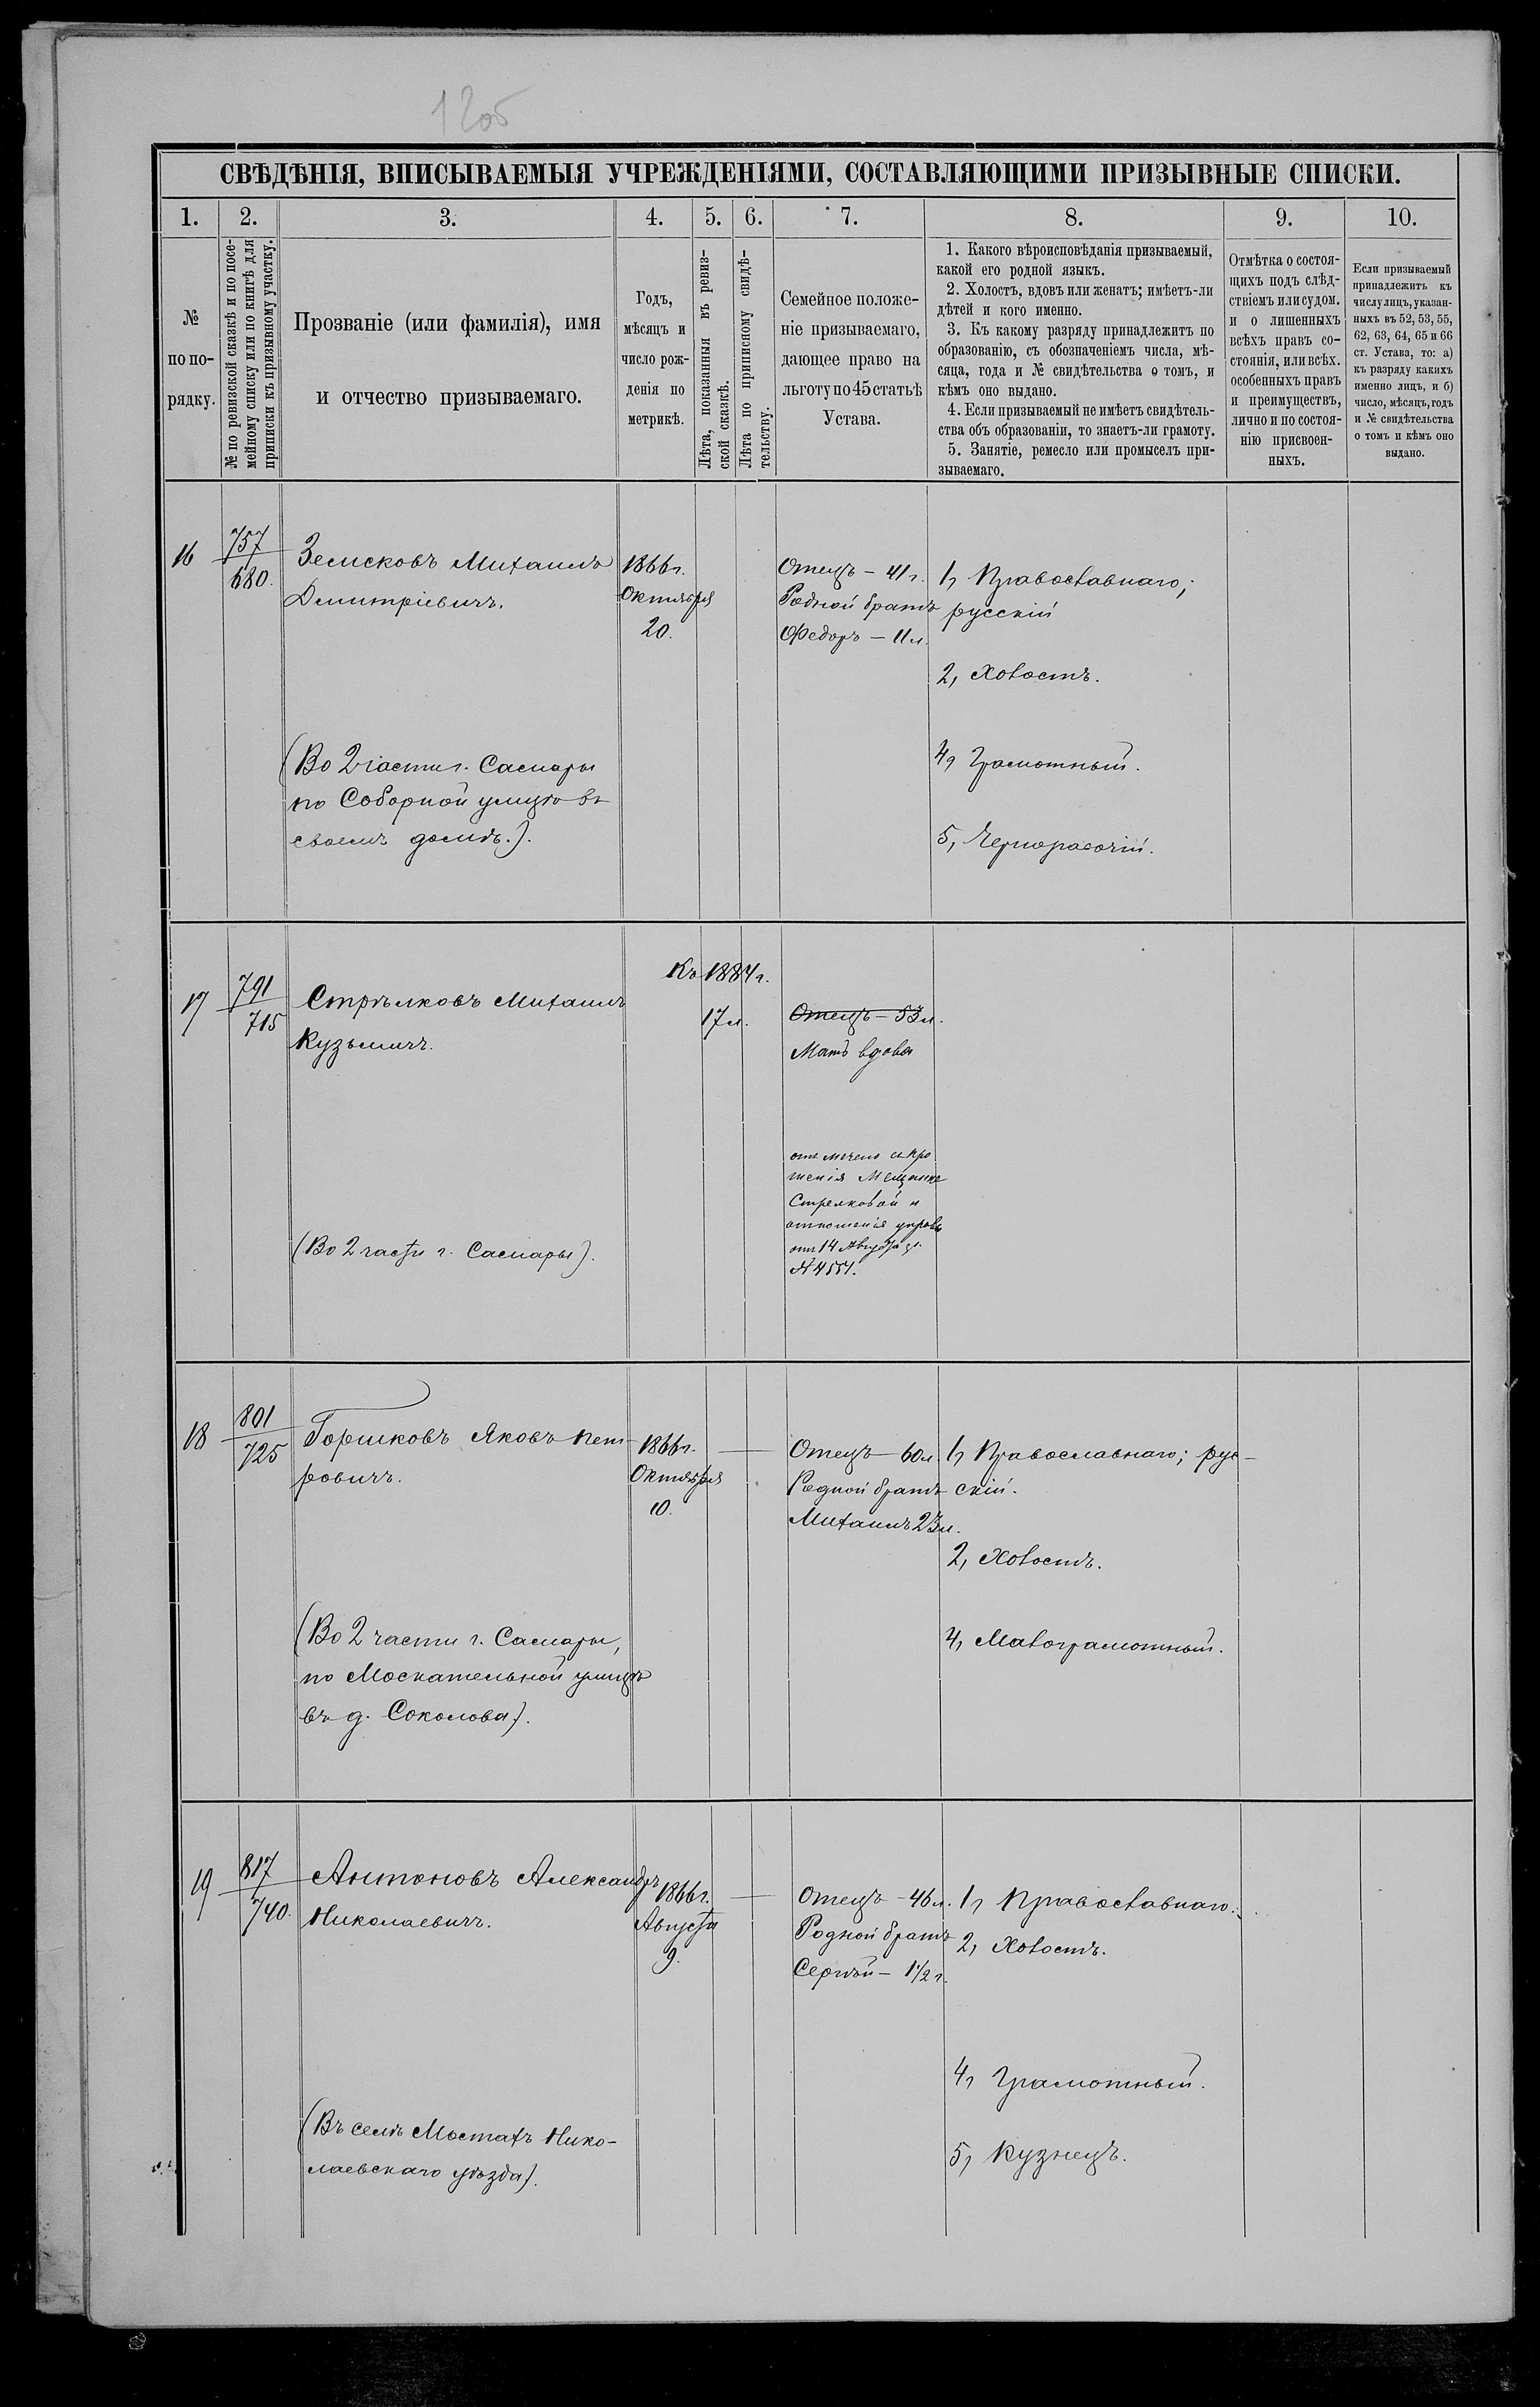 1205
СВѢДѢНІЯ, ВПИСЫВАЕМЫЯ УЧРЕЖДЕНІЯМИ, СОСТАВЛЯЮЩИМИ ПРИЗЫВНЫЕ СПИСКИ.
1. 2. 3. 4. 5. 6. 7. 8. 9. 10.
№
по по-
рядку.
№ по ревизской сказкѣ и по посе-
мейному списку или по книгѣ для
приписки къ призывному участку.
Прозваніе (или фамилія), имя
и отчество призываемаго.
Годъ,
мѣсяцъ и
число рож-
денія по
метрикѣ.
Лѣта, показанныя въ ревиз-
ской сказкѣ.
Лѣта по приписному свидѣ-
тельству.
Семейное положе-
ніе призываемаго,
дающее право на
льготу по 45 статьѣ
Устава.
1. Какого вѣроисповѣданія призываемый,
какой его родной языкъ.
2. Холостъ, вдовъ или женатъ; имѣетъ-ли
дѣтей и кого именно.
3. Къ какому разряду принадлежитъ по
образованію, съ обозначеніемъ числа, мѣ-
сяца, года и № свидѣтельства о томъ, и
кѣмъ оно выдано.
4. Если призываемый не имѣетъ свидѣтель-
ства объ образованіи, то знаетъ-ли грамоту.
5. Занятіе, ремесло или промыселъ при-
зываемаго.
Отмѣтка о состоя-
щихъ подъ слѣд-
ствіемъ или судом.
и о лишенныхъ
всѣхъ правъ со-
стоянія, или всѣх.
особенныхъ правъ
и преимуществъ,
лично и по состоя-
нію присвоен-
ныхъ.
Если призываемый
принадлежитъ къ
числу лицъ, указан-
ныхъ въ 52, 53, 55,
62, 63, 64, 65 и 66
ст. Устава, то: а)
къ разряду какихъ
именно лицъ, и б)
число, мѣсяцъ, годъ
и № свидѣтельства
о томъ и кѣмъ оно
выдано.
16
757
680.
Земсковъ Михаилъ
Дмитріевичъ.
(Во 2 части г. Самары
по Соборной улицѣ въ
своемъ домѣ.).
1866 г.
Октября
20.
Отецъ – 41 г.
Родной братъ
Федоръ – 11 л.
1, Православнаго;
русскій
2, Холостъ.
4, Грамотный.
5, Чернорабочій.
17
791
715
Стрѣлковъ Михаилъ
Кузьмичъ.
(Во 2 части г. Самары).
Къ 1884 г.
17 л.
Отецъ – 53 л.
Мать вдова
отмечено съ про
шенія Мещанке
Стрелковой и
отношенія управы
от 14 Августа
№ 4551.
18
801
725
Горшковъ Яковъ Пет-
ровичъ.
(Во 2 части г. Самары,
по Москательной улицѣ
въ д. Соколова).
1866 г.
Октября
10.
Отецъ – 60 л.
Родной братъ
Михаилъ 23 л.
1, Православнаго; рус-
скій.
2, Холостъ.
4, Малограмотный.
19
817
740.
Антоновъ Александръ
Николаевичъ.
(Въ селѣ Мостахъ Нико-
лаевскаго уѣзда).
1866 г.
Августа
9.
Отецъ – 46 л.
Родной братъ
Сергѣй – 1 1/2 г.
1, Православнаго.
2, Холостъ.
4, Грамотный.
5, Кузнецъ.